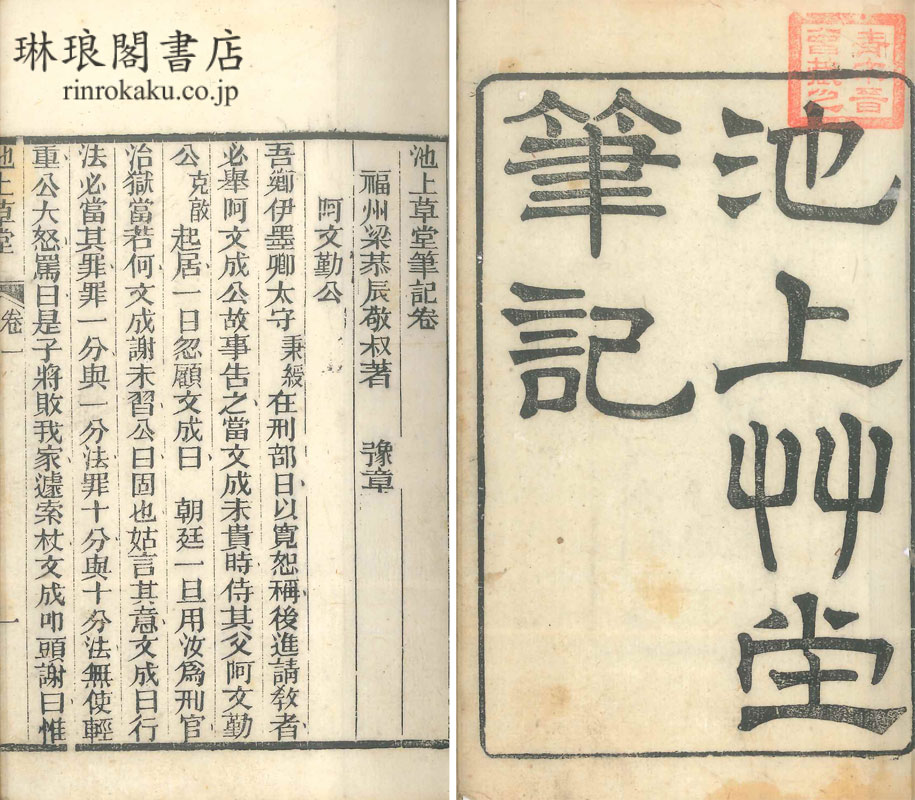 琳琅閣書店
rinrokaku.co.jp
池上艸堂
筆記
池上草堂筆記卷
福州梁恭辰敬叔著 豫章
阿文勤公
吾鄉伊墨卿太守秉綬在刑部日以寬恕稱後進請教者
必舉阿文成公故事告之當文成未貴時侍其父阿文勤
公克敵起居一日忽顧文成曰 朝廷一旦用汝爲刑官
治獄當若何文成謝未習公曰固也姑言其意文成曰行
法必當其罪罪一分與一分法罪十分與十分法無使輕
重公大怒罵曰是子將敗我家遽索杖文成叩頭謝曰惟
池上草堂 卷一 一